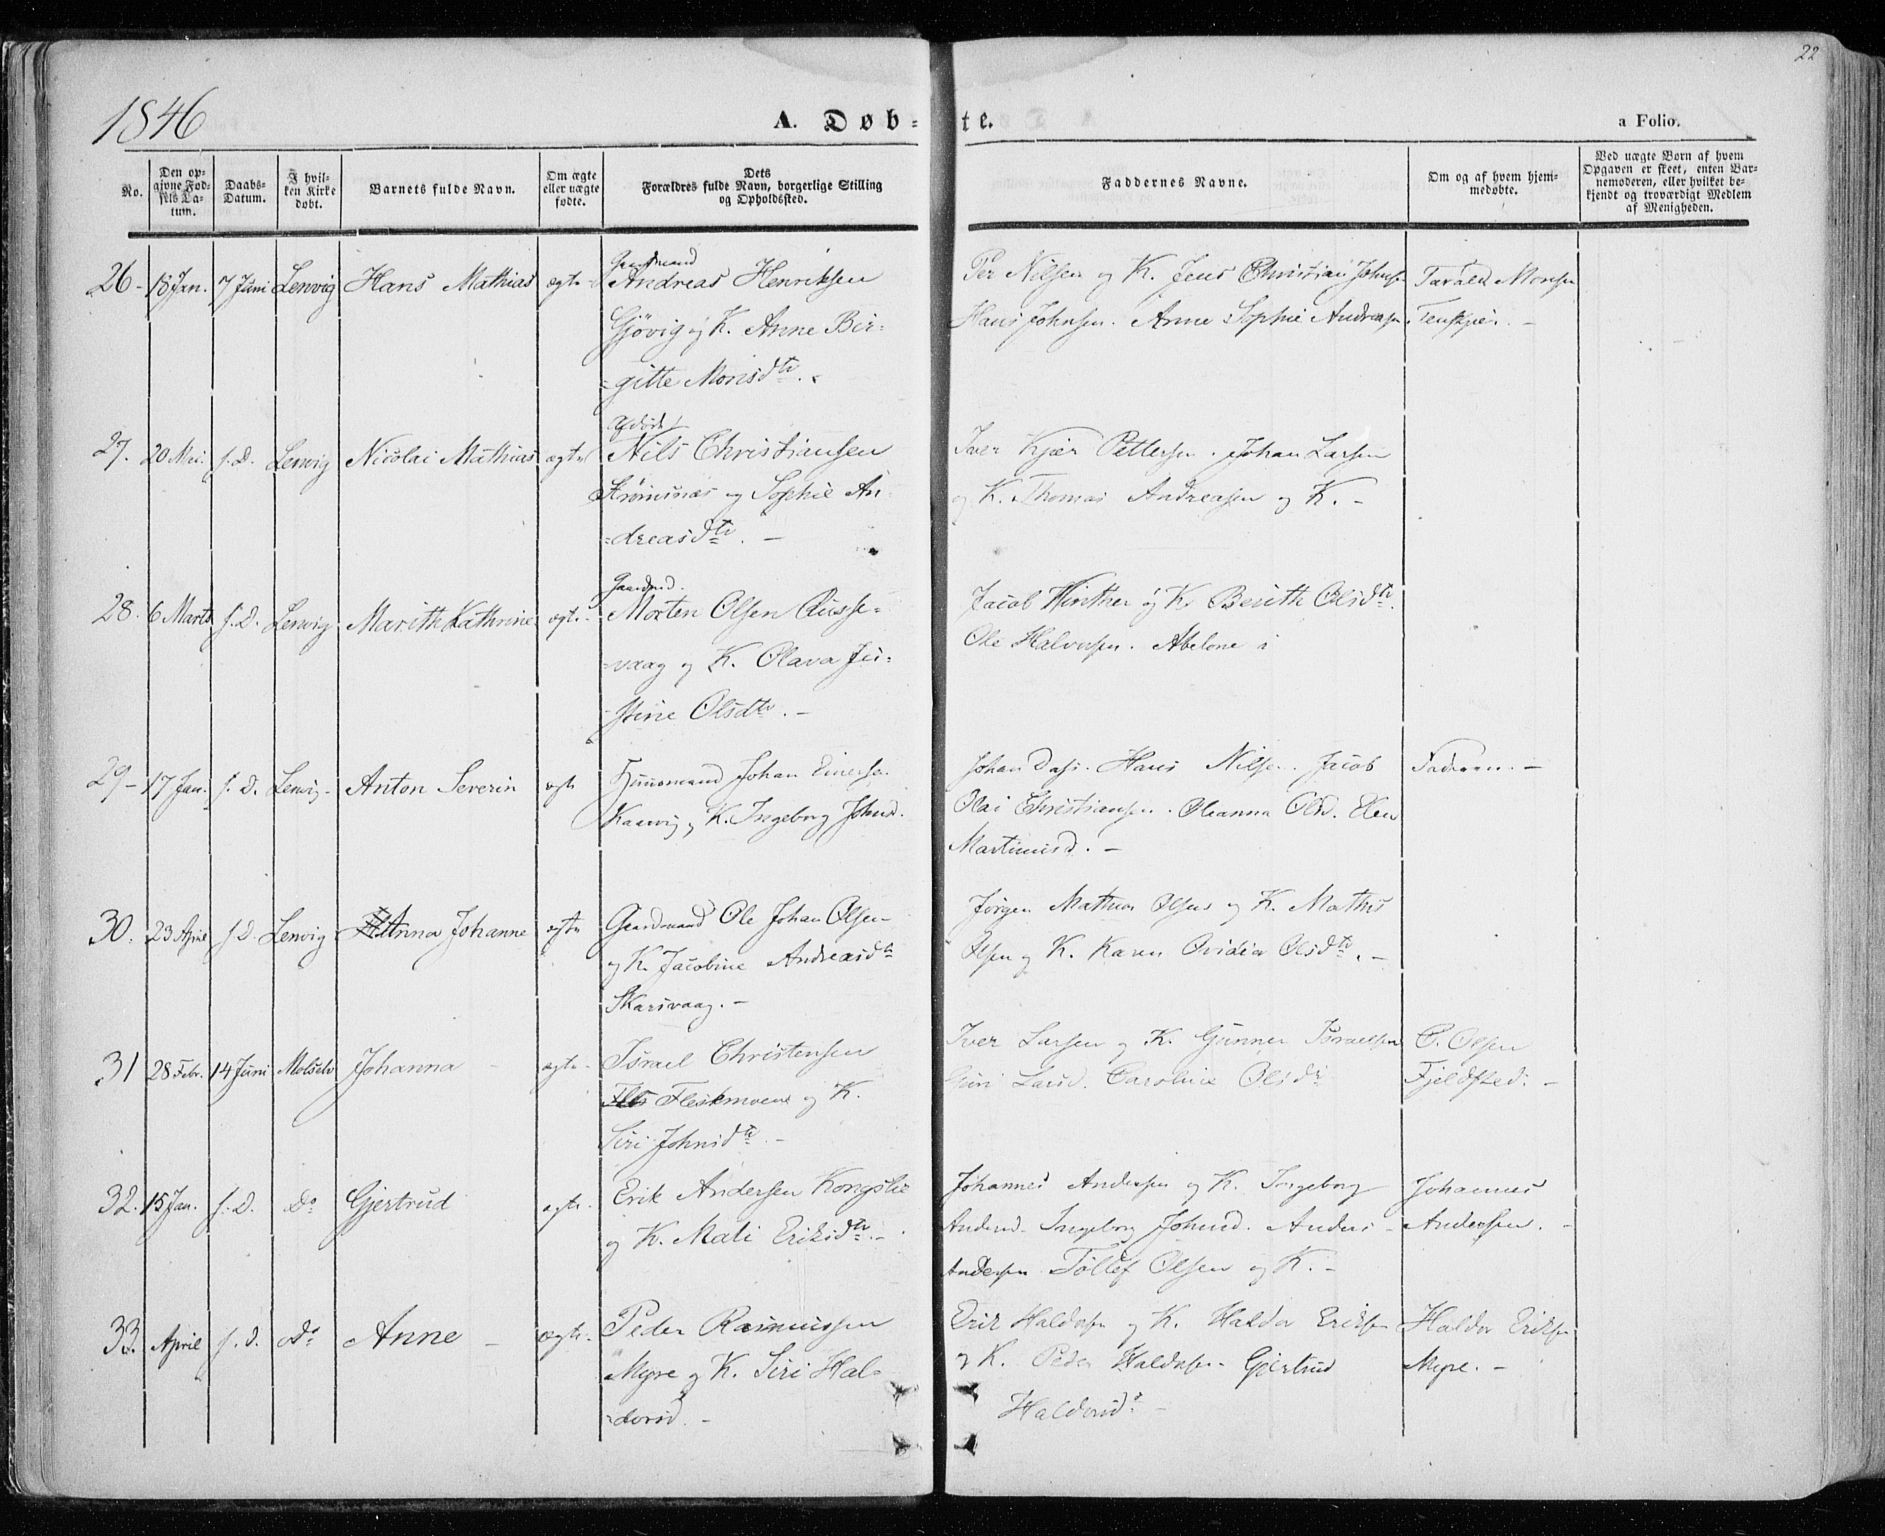 22
1846
A. Døb-te.
a Folio.
No.
Den op-
givne Fød-
sels Da-
tum.
Daabs-
Datum.
I hvil-
ken Kirke
døbt.
Barnets fulde Navn.
Om ægte
eller uægte
fødte.
Dets
Forældres fulde Navn, borgerlige Stilling
og Opholdssted.
Faddernes Navne.
Om og af hvem hjem-
medøbte.
Ved uægte Børn af hvem
Opgaven er skeet, enten Bar-
nemoderen, eller hvilket be-
kjendt og troværdigt Medlem
af Menigheden.
Gaardmand
26 - 18 Jan. 7 Juni Lenvig Hans Mathias ægte - Andreas Henriksen Per Nilsen og K. Jens Christian Johnsen
Gjövig og K. Anne Bir- Hans Johnsen. Anne Sophie Andreasen.
=gitte Monsdtr.
afdöde
27. 20 Mai. s. D. Lenvig Nicolai Mathias ægte Nils Christiansen Iver Kjær Pettersen. Johan Larsen
Strömsnæs og Sophie An- og K. Thomas Andreasen og K. -
=dreasdtr. -
Gaardmd.
28. 6 Marts s. D. Lenvig Marith Kathrine ægte - Morten Olsen Ausse- Jacob Winther og K. Berith Olsdtr.
-vaag og K. Olava Ju- Ole Halvorsen. Abelone
-stine Olsdtr. -
29 - 17 Jan. s. D. Lenvig - Anton Severin ægte Huusmand Johan Einersen Johan Dass. Hans Nilsen. Jacob Faderen. -
Kaarvig og K. Ingeborg Johnsd. Olai Christiansen. Oleanna Olsd. Elen
Martinusd. -
30. 23 April s. D. Lenvig Anna Johanne ægte Gaardmand Ole Johan Olsen Jørgen Mathias Olsen og K. Mathis
og K. Jacobine Andreasdtr Olsen og K. Karen Ovidia Olsdtr. -
Skarsvaag. -
31 28 Febr. 14 Juni Molselv Johanna - ægte - Israel Christensen Iver Larsen og K. Gunner Israelsen O. Olsen
Fleskmoene og K. Guri Larsd. Caroline Olsdr. Fjeldsted. -
Siri Johnsdtr. -
32. 15 Jan. s. D. Do Gjertrud ægte. Erik Andersen Kongslie Johannes Andersen og K. Ingeborg Johannes
og K. Mali Eriksdtr. - Andersd. Ingeborg Johnsd. Anders - Andersen. -
Andersen. Tollef Olsen og K. -
33. April s. D. Do Anne - ægte. Peder Rasmussen Erik Haldorsen og K. Haldor Eriksen Haldor Eriksen
Myre og K. Siri Hal- og K. Peder Haldorsen. Gjertrud Myre. -
=dorsd. - Haldorsdr. -